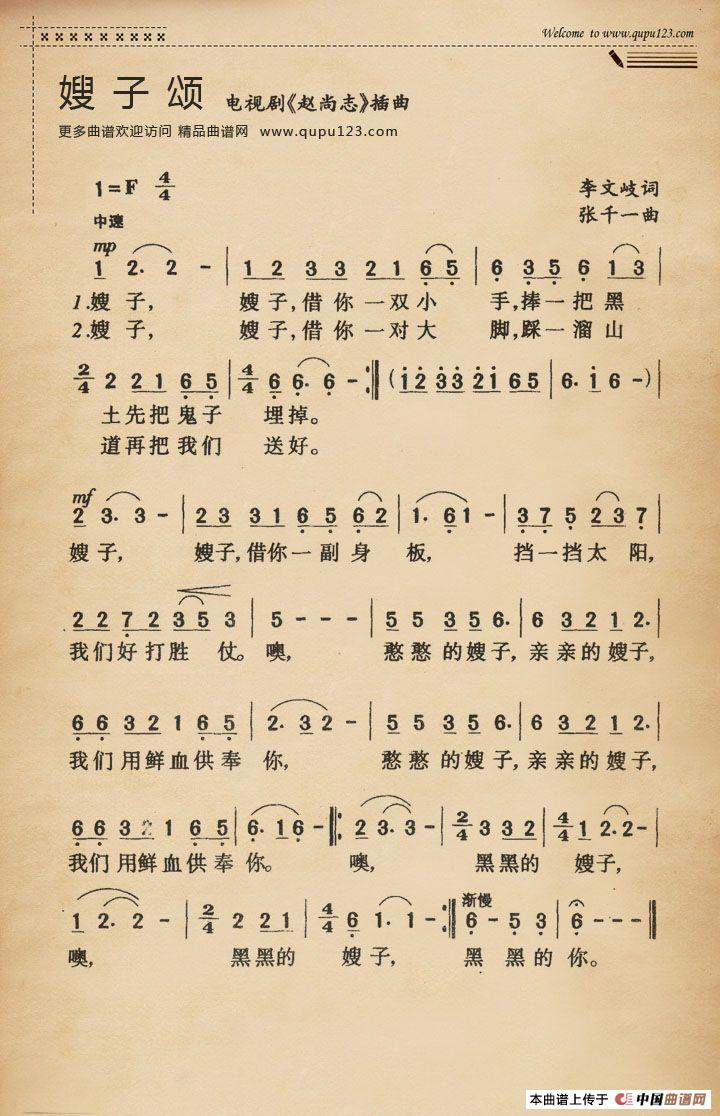 Welcome to www.qupu123.com
嫂子颂 电视剧《赵尚志》插曲
更多曲谱欢迎访问 精品曲谱网 www.qupu123.com
1=F 4/4 李文岐词
中速 张千一曲
mp
1 2. 2 - | 1 2 3 3 2 1 6 5 | 6 3 5 6 1 3 |
1.嫂子, 嫂子,借你一双小 手,捧一把黑
2.嫂子, 嫂子,借你一对大 脚,踩一溜山
2/4 2 2 1 6 5 | 4/4 6 6. 6 - :‖ (1 2 3 3 2 1 6 5 | 6. 1 6 -) |
土先把鬼子 埋掉。
道再把我们 送好。
mf
2 3. 3 - | 2 3 3 1 6 5 6 2 | 1. 6 1 - | 3 7 5 2 3 7. |
嫂子, 嫂子,借你一副身 板, 挡一挡太阳,
2 2 7 2 3 5 3 | 5 - - - | 5 5 3 5 6. | 6 3 2 1 2. |
我们好打胜 仗。噢, 憨憨的嫂子,亲亲的嫂子,
6 6 3 2 1 6 5 | 2. 3 2 - | 5 5 3 5 6. | 6 3 2 1 2. |
我们用鲜血供奉你, 憨憨的嫂子,亲亲的嫂子,
6 6 3 2 1 6 5 | 6. 1 6 - ‖: 2 3. 3 - | 2/4 3 3 2 | 4/4 1 2. 2 - |
我们用鲜血供奉你。 噢, 黑黑的 嫂子,
渐慢
1 2. 2 - | 2/4 2 2 1 | 4/4 6 1. 1 - :‖ 6 - 5 3 | 6 - - - ‖
噢, 黑黑的 嫂子, 黑 黑的你。
本曲谱上传于 中国曲谱网